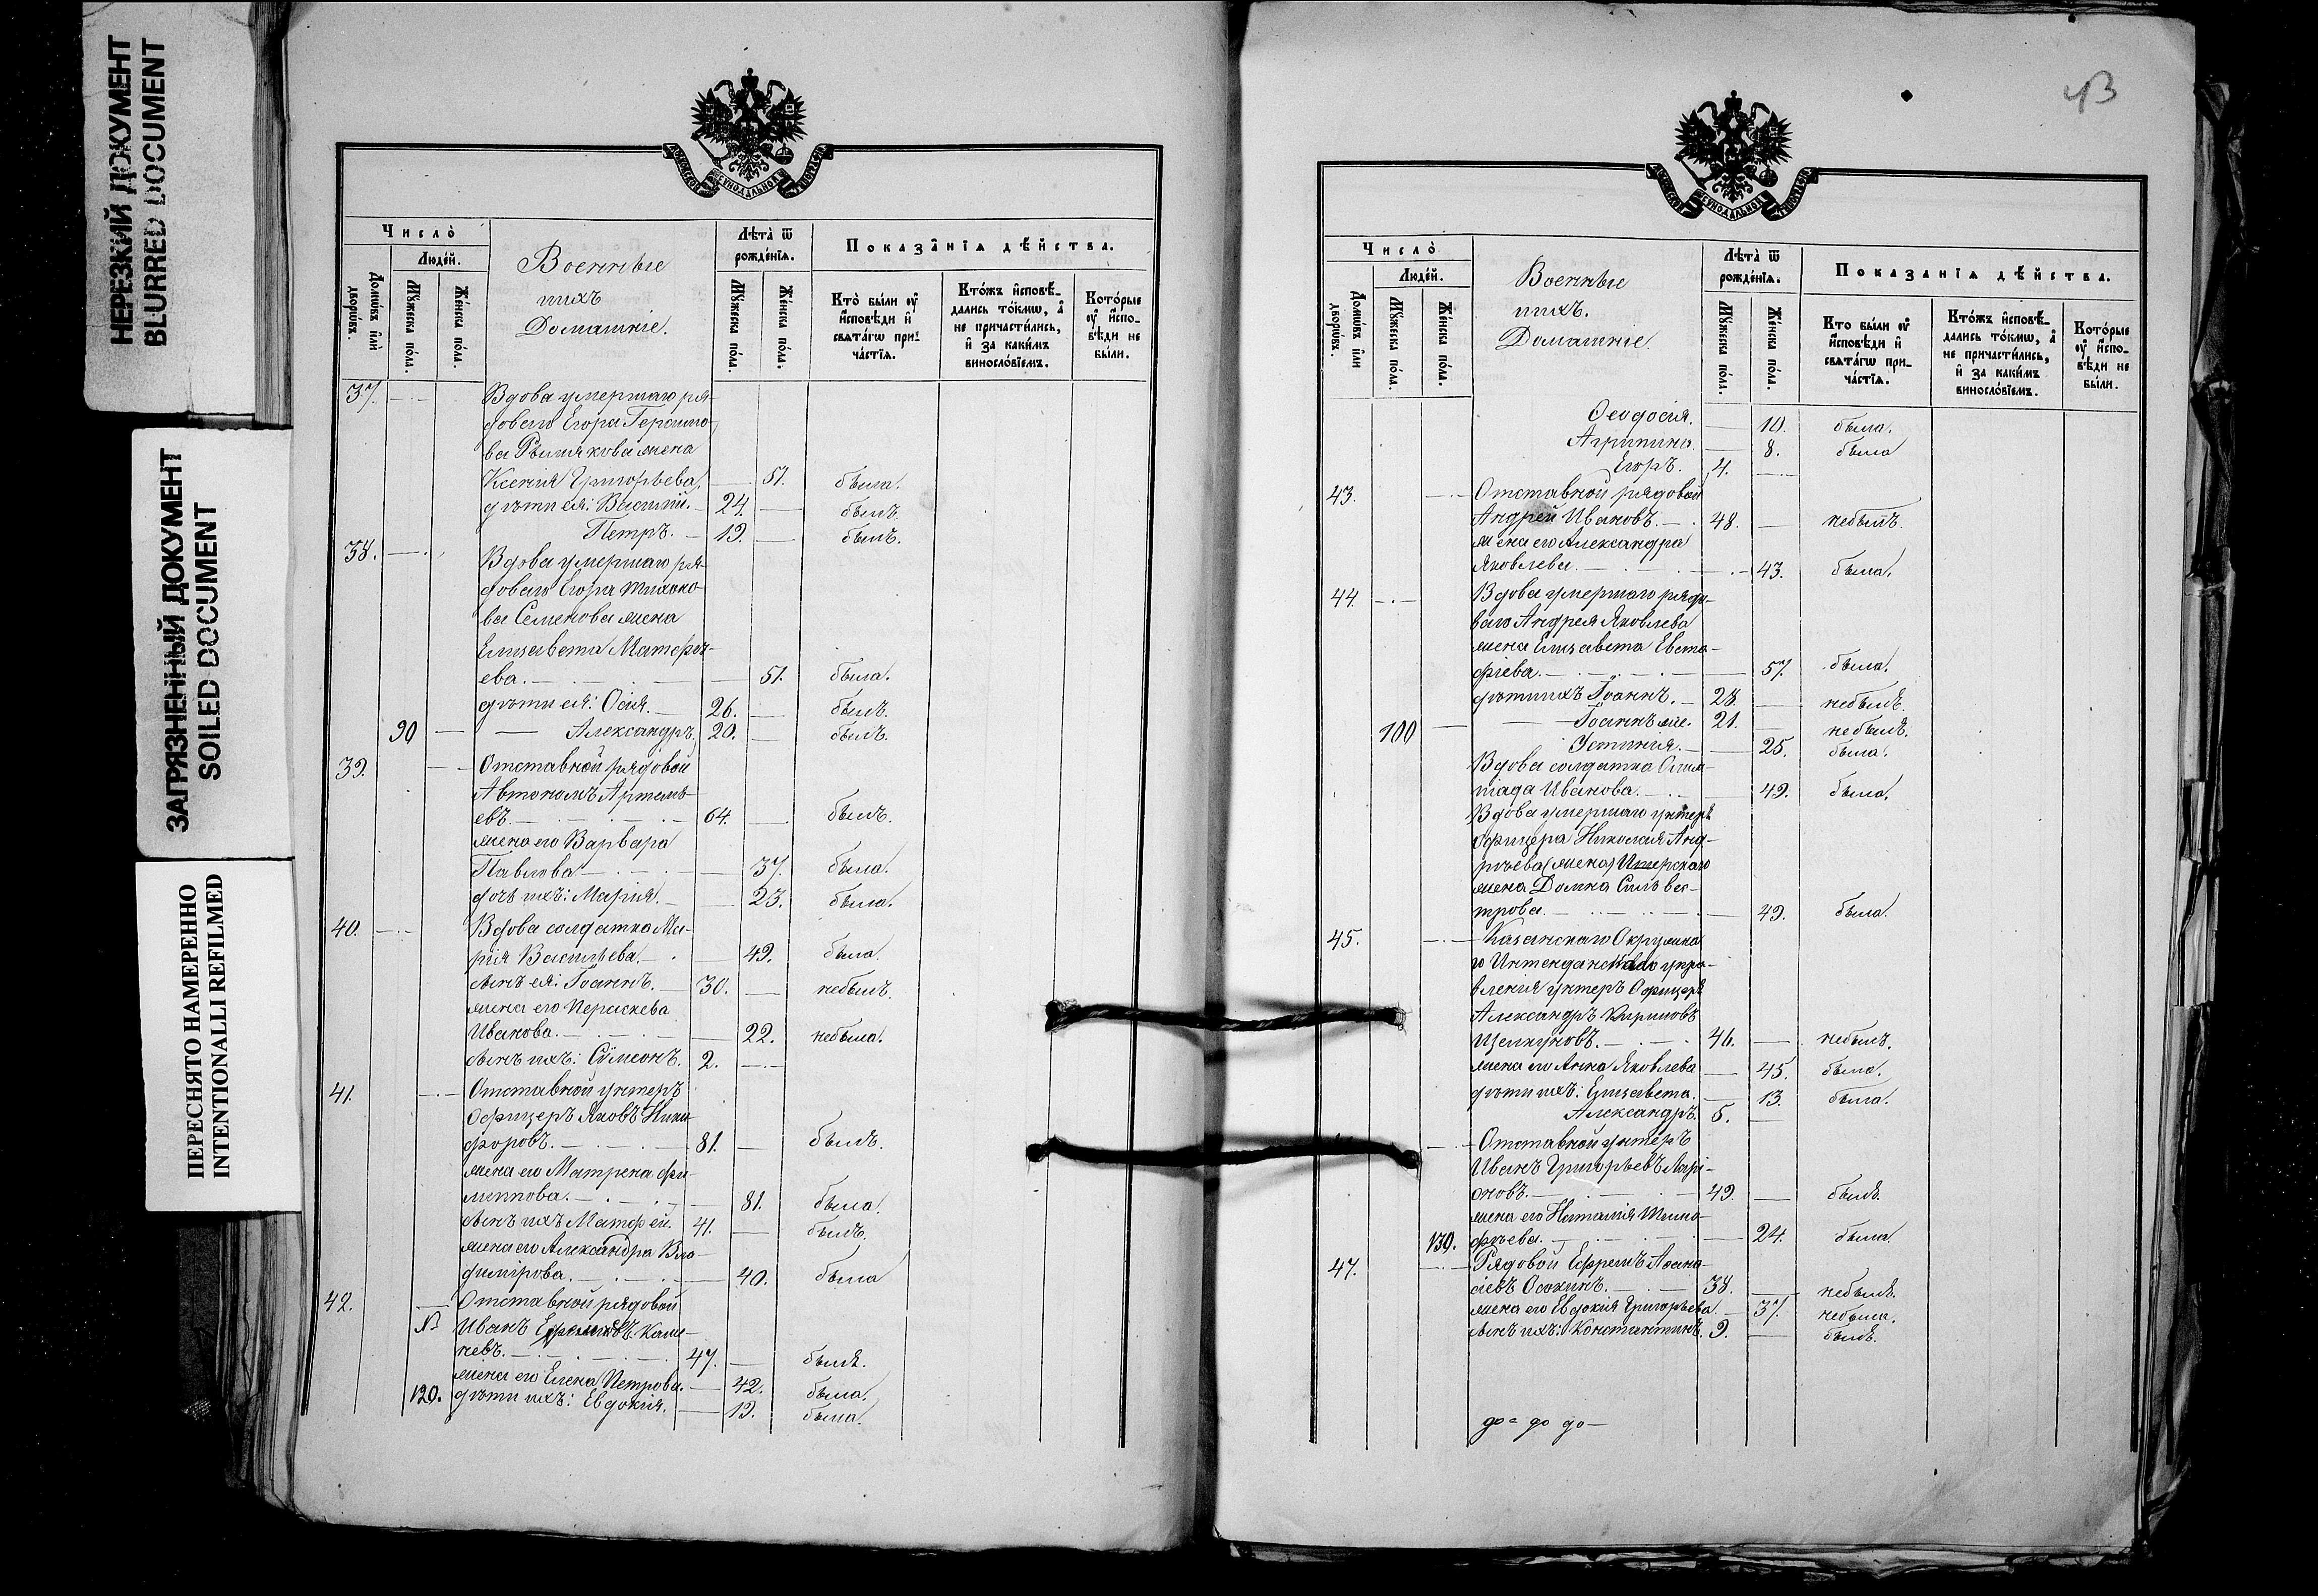 НЕРЕЗКИЙ ДОКУМЕНТ
BLURRED DOCUMENT
ЗАГРЯЗНЕННЫЙ ДОКУМЕНТ
SOILED DOCUMENT
ПЕРЕСНЯТО НАМЕРЕННО
INTENTIONALLI REFILMED
МОСКОВСКОЙ СѴНОДАЛЬНОЙ ТИПОГРАФІИ
Число̀
Люде́й.
Домѡ́въ и҆лѝ дворѡ́въ.
Мꙋ́жеска по́ла.
Же́нска по́ла.
Военные
ихъ
Домашніе.
Лѣ́та ѿ рожде́нїѧ.
Мꙋ́жеска по́ла.
Же́нска по́ла.
Показа̑нїѧ дѣ́йства.
Кто̀ бы́ли ᲂу҆ и҆́сповѣди и҆ свѧта́гѡ прича́стїѧ.
Кто́жъ и҆сповѣ́дались то́кмѡ, а҆ не причасти́лись, и҆ за каки́мъ винослóвїемъ.
Кото́рые ᲂу҆ и҆́сповѣди не бы́ли.
37. Вдова умершаго ря-
доваго Егора Герасимо-
ва Рымакова жена
Ксенія Григорьева. 51. была.
дѣти ея: Василій. 24. былъ.
Петръ. 19. былъ.
38. Вдова умершаго ря-
доваго Егора Тихоно-
ва Семенова жена
Елисавета Матфѣ-
ева. 51. была.
дѣти ея: Осія. 26. былъ.
90 Александръ. 20. былъ.
39. Отставной рядовой
Автономъ Артемь-
евъ. 64. былъ.
жена его Варвара
Павлова 37. была.
дочь ихъ: Марія. 23. была.
40. Вдова солдатка Ма-
рія Васильева. 49. была.
сынъ ея: Іоаннъ. 30. небылъ.
жена его Параскева
Иванова. 22. небыла.
сынъ ихъ: Сѵмеонъ. 2.
41. Отставной унтеръ
Офицеръ Яковъ Ники-
форовъ. 81. былъ.
жена его Матрена Фи-
липпова. 81. была.
сынъ ихъ Матфей. 41. былъ.
жена его Александра Вла-
димірова. 40. была
42. Отставной рядовой
№ Иванъ Кали-
невъ. 47. былъ.
жена его Елена Петрова. 42. была.
120. дѣти ихъ: Евдокія. 19. была.
43
МОСКОВСКОЙ СѴНОДАЛЬНОЙ ТИПОГРАФІИ
Число̀
Люде́й.
Домѡ́въ и҆лѝ дворѡ́въ.
Мꙋ́жеска по́ла.
Же́нска по́ла.
Военные
ихъ.
Домашніе.
Лѣ́та ѿ рожде́нїѧ.
Мꙋ́жеска по́ла.
Же́нска по́ла.
Показа̑нїѧ дѣ́йства.
Кто̀ бы́ли ᲂу҆ и҆́сповѣди и҆ свѧта́гѡ прича́стїѧ.
Кто́жъ и҆сповѣ́дались то́кмѡ, а҆ не причасти́лись, и҆ за каки́мъ винослóвїемъ.
Кото́рые ᲂу҆ и҆́сповѣди не бы́ли.
Ѳеодосія. 10. была.
Агрипина. 8. была
Егоръ. 4.
43. Отставной рядовой
Андрей Ивановъ. 48. небылъ.
жена его Александра
Яковлева. 43. была.
44. Вдова умершаго рядо-
ваго Андрея Яковлева
жена Елисавета Евста-
фіева. 57. была.
дѣти ихъ Іоаннъ. 28. небылъ.
100 Іоаннъ же. 21. небылъ.
Устинія. 25. была.
Вдова солдатка Олим-
піада Иванова. 49. была.
Вдова умершаго унтеръ
офицера Николая Анд-
рѣева (жена) Имерскаго
жена Домна Сильвес-
трова. 49. была.
45. Казанскаго Окружна
го Интендантскаго упра-
вленія унтеръ Офицеръ
Александръ Кириловъ
Щелкуновъ. 46. небылъ.
жена его Анна Яковлева 45. была.
дѣти ихъ: Елисавета. 13. была.
Александръ. 5.
Отставной унтеръ
Иванъ Григорьевъ Лари-
оновъ. 49. былъ.
жена его Наталія Тимо-
130. фѣева. 24. была.
47. Рядовой Ефремъ Аѳана-
сіевъ Осокинъ. 38. небылъ.
жена его Евдокія Григорьева. 37. небыла.
сынъ ихъ: Константинъ. 9. былъ.
до= до до—